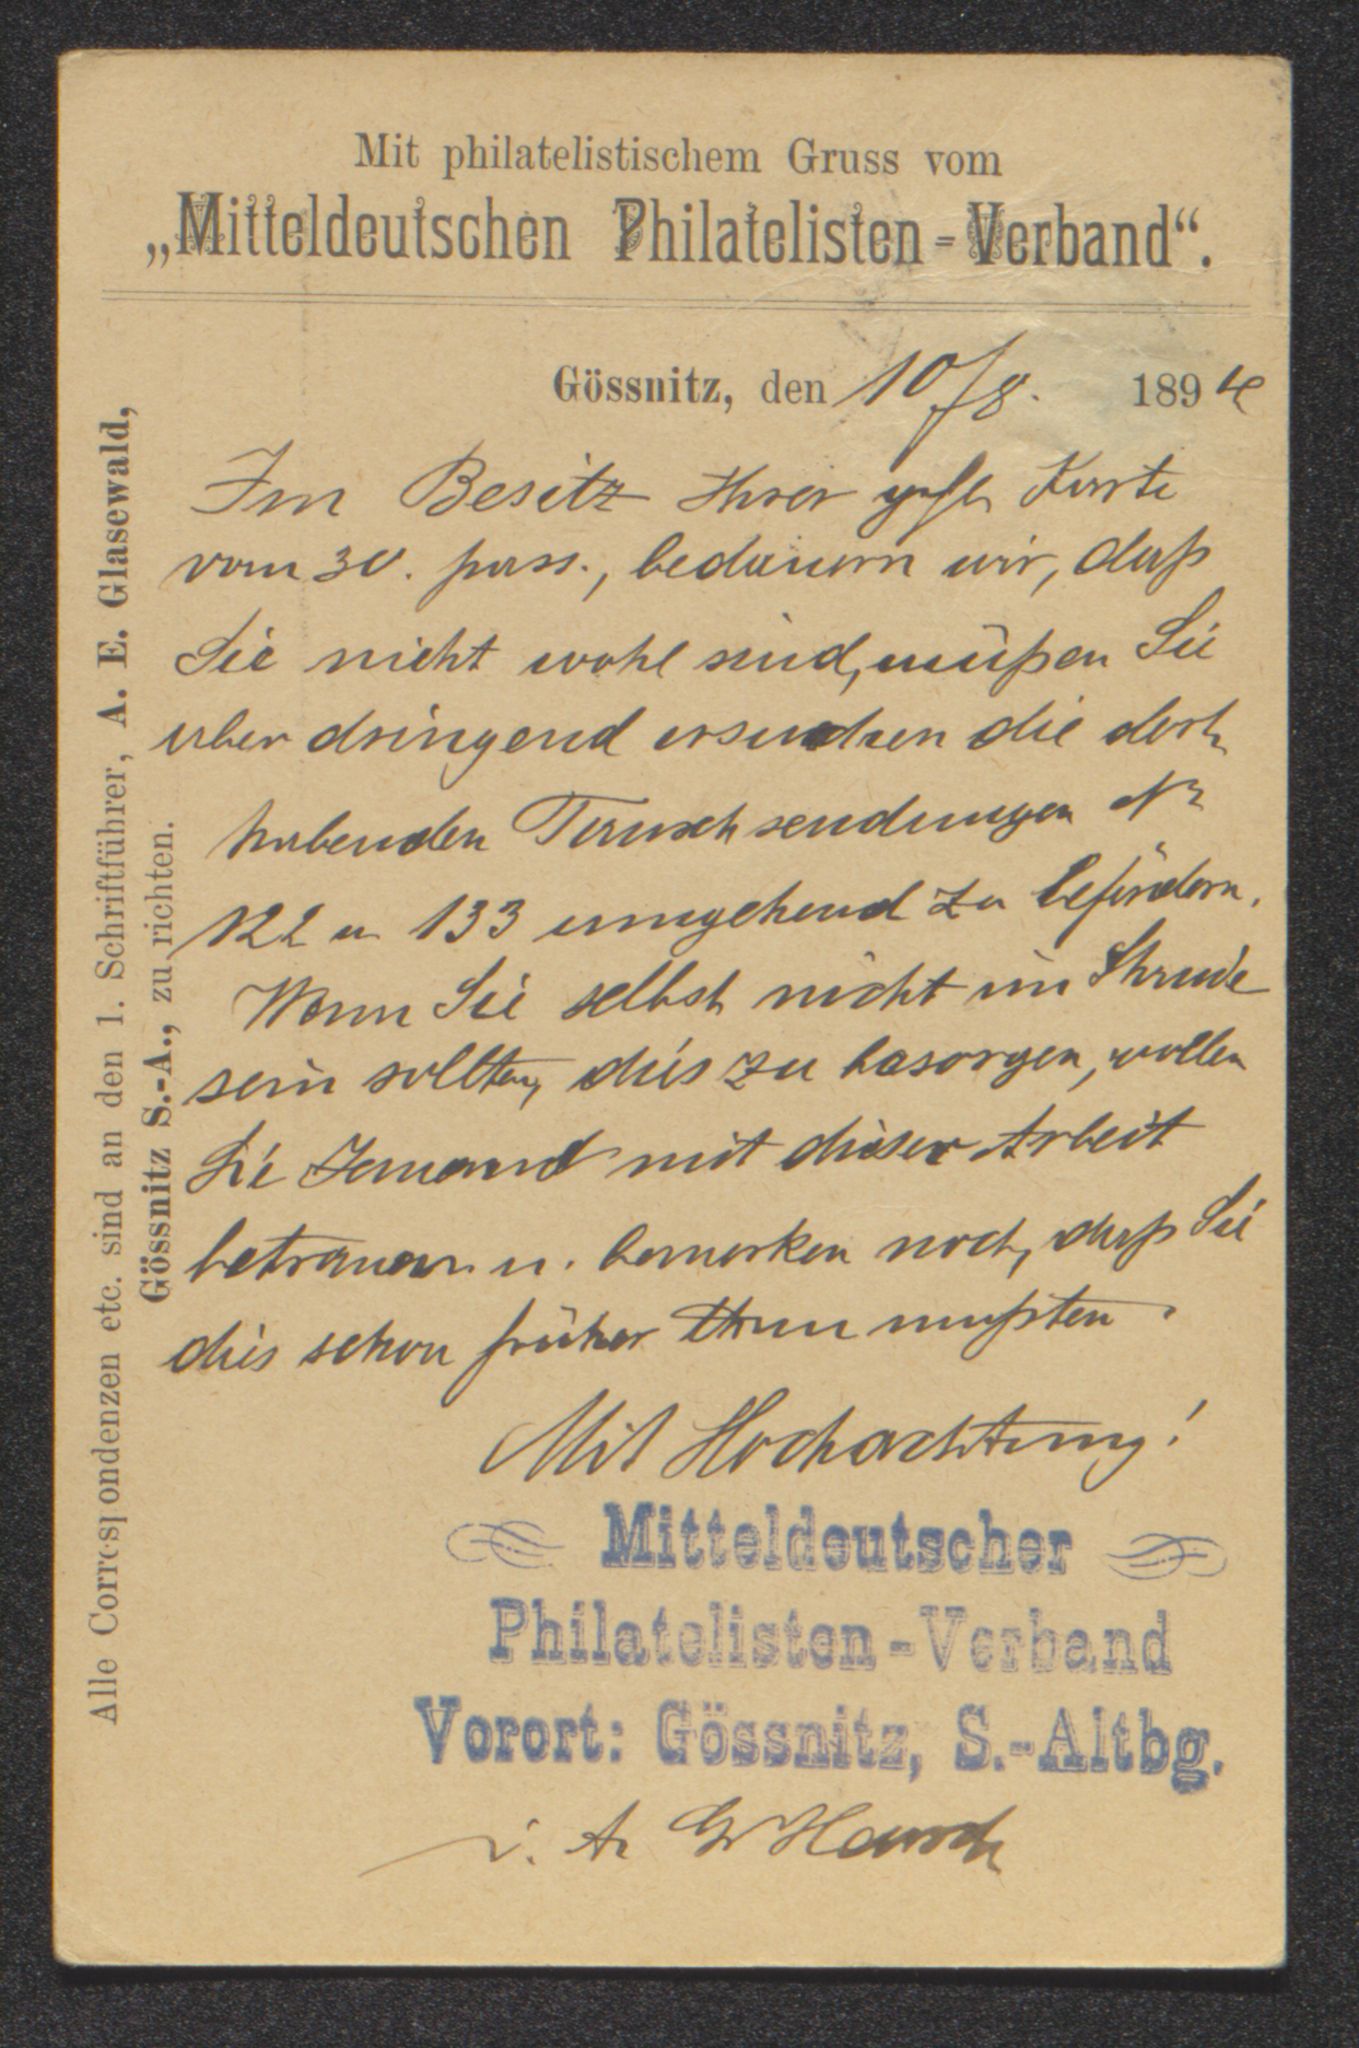 Mit philatelistischem Gruss vom
„Mitteldeutschen Philatelisten-Verband“.
Gössnitz, den 10/8. 1894
Im Besitz Ihrer gefl Karte
vom 30. pass., bedauern wir, daß
Sie nicht wohl sind, müßen Sie
aber dringend ersuchen die dort
habenden Tauschsendungen No
122 u 133 umgehend zu befördern.
Wenn Sie selbst nicht im Stande
sein sollten, dies zu besorgen, wollen
Sie Jemand mit dieser Arbeit
betrauen u. bemerken noch, daß Sie
dies schon früher thun mußten.
Mit Hochachtung!
Mitteldeutscher
Philatelisten-Verband
Vorort: Gössnitz, S.-Altbg.
i. A.
Alle Correspondenzen etc. sind an den 1. Schriftführer, A. E. Glasewald,
Gössnitz S.-A., zu richten.